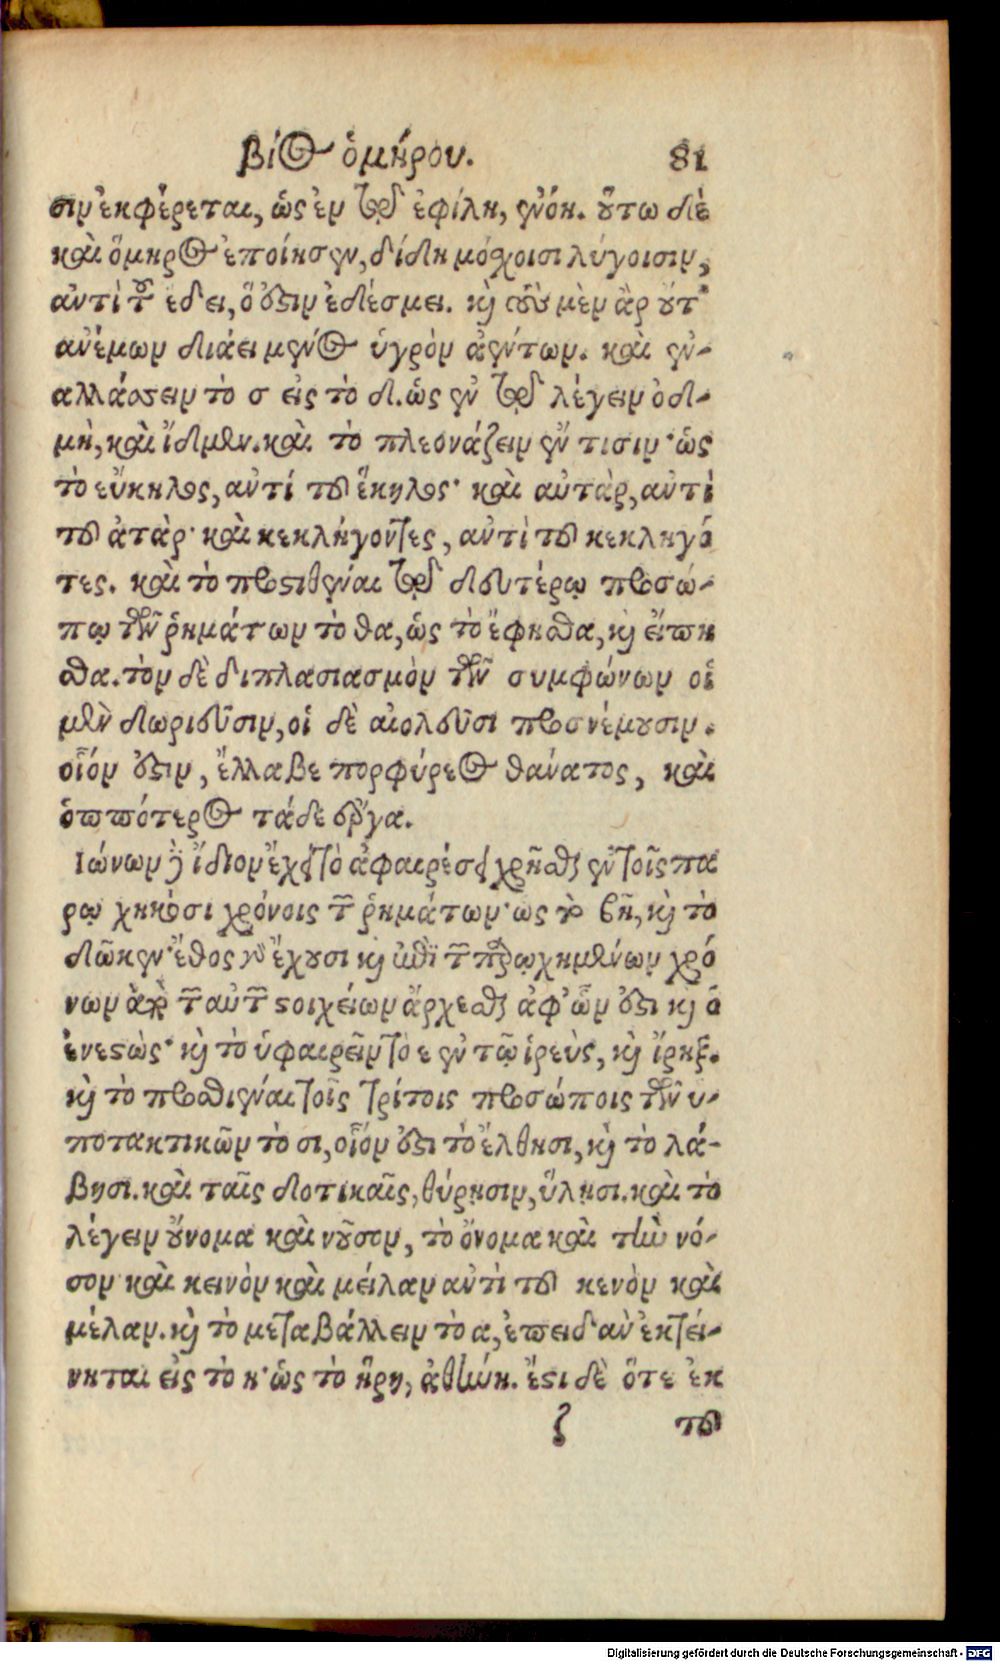 βίος ὁμήρου. 81
σιν ἐκφέρεται, ὡς ἐν τῷ ἐφίλη, ἐνόη. οὕτω δὲ
καὶ ὅμηρος ἐποίησεν, δίδη μόσχοισι λύγοισιν,
ἀντὶ τοῦ ἔδει, ὅ ἐστιν ἐδέσμει. καὶ τὸ μὲν ἂρ οὔτ'
ἀνέμων διάει μένος ὑγρὸν ἀέντων. καὶ ἐν-
αλλάσσειν τὸ σ εἰς τὸ δ. ὡς ἐν τῷ λέγειν ὀδ-
μὴ, καὶ ἴδμεν. καὶ τὸ πλεονάζειν ἔν τισιν· ὡς
τὸ εὔκηλος, ἀντί τοῦ ἕκηλος· καὶ αὐτὰρ, ἀντὶ
τοῦ ἀτάρ· καὶ κεκλήγοντες, ἀντὶ τοῦ κεκληγό
τες. καὶ τὸ προστιθέναι τῷ δευτέρῳ προσώ-
πῳ τῶν ῥημάτων τὸ θα, ὡς τὸ ἔφησθα, καὶ εἴπη
σθα. τὸν δὲ διπλασιασμὸν τῶν συμφώνων οἱ
μὲν δωριεῦσιν, οἱ δὲ αἰολεῦσι προσνέμουσιν.
οἷόν ἐστιν, ἔλλαβε πορφύρεος θάνατος, καὶ
ὁππότερος τάδε ἔργα.
Ιώνων δὲ ἴδιον ἔχει τὸ ἀφαιρέσει χρῆσθαι ἐν τοῖς πα
ρῳχηκόσι χρόνοις τῶν ῥημάτων· ὡς τὸ βῆ, καὶ τὸ
δῶκεν· ἔθος γὰρ ἔχουσι καὶ ἐπὶ τῶν παρῳχημένων χρό
νων ἀπὸ τῶν αὐτῶν στοιχείων ἄρχεσθαι ἀφ' ὧν ἐστι καὶ ὁ
ἐνεστώς· καὶ τὸ ὑφαιρεῖν τὸ ε ἐν τῷ ἱρεὺς, καὶ ἴρηξ.
καὶ τὸ προσθιέναι τοῖς τρίτοις προσώποις τῶν ὑ-
ποτακτικῶν τὸ σι, οἷόν ἐστι τὸ ἔλθησι, καὶ τὸ λά-
βησι. καὶ ταῖς δοτικαῖς, θύρῃσιν, ὕλῃσι. καὶ τὸ
λέγειν οὔνομα καὶ νοῦσον, τὸ ὄνομα καὶ τὴν νό-
σον· καὶ κεινὸν καὶ μείλαν ἀντὶ τοῦ κενὸν καὶ
μέλαν. καὶ τὸ μεταβάλλειν τὸ α, ἐπειδ' ἂν ἐκτεί-
νηται εἰς τὸ η· ὡς τὸ ἥρη, ἀθήνη. ἔστι δὲ ὅτε ἐκ
ζ τοῦ
Digitalisierung gefördert durch die Deutsche Forschungsgemeinschaft - DFG